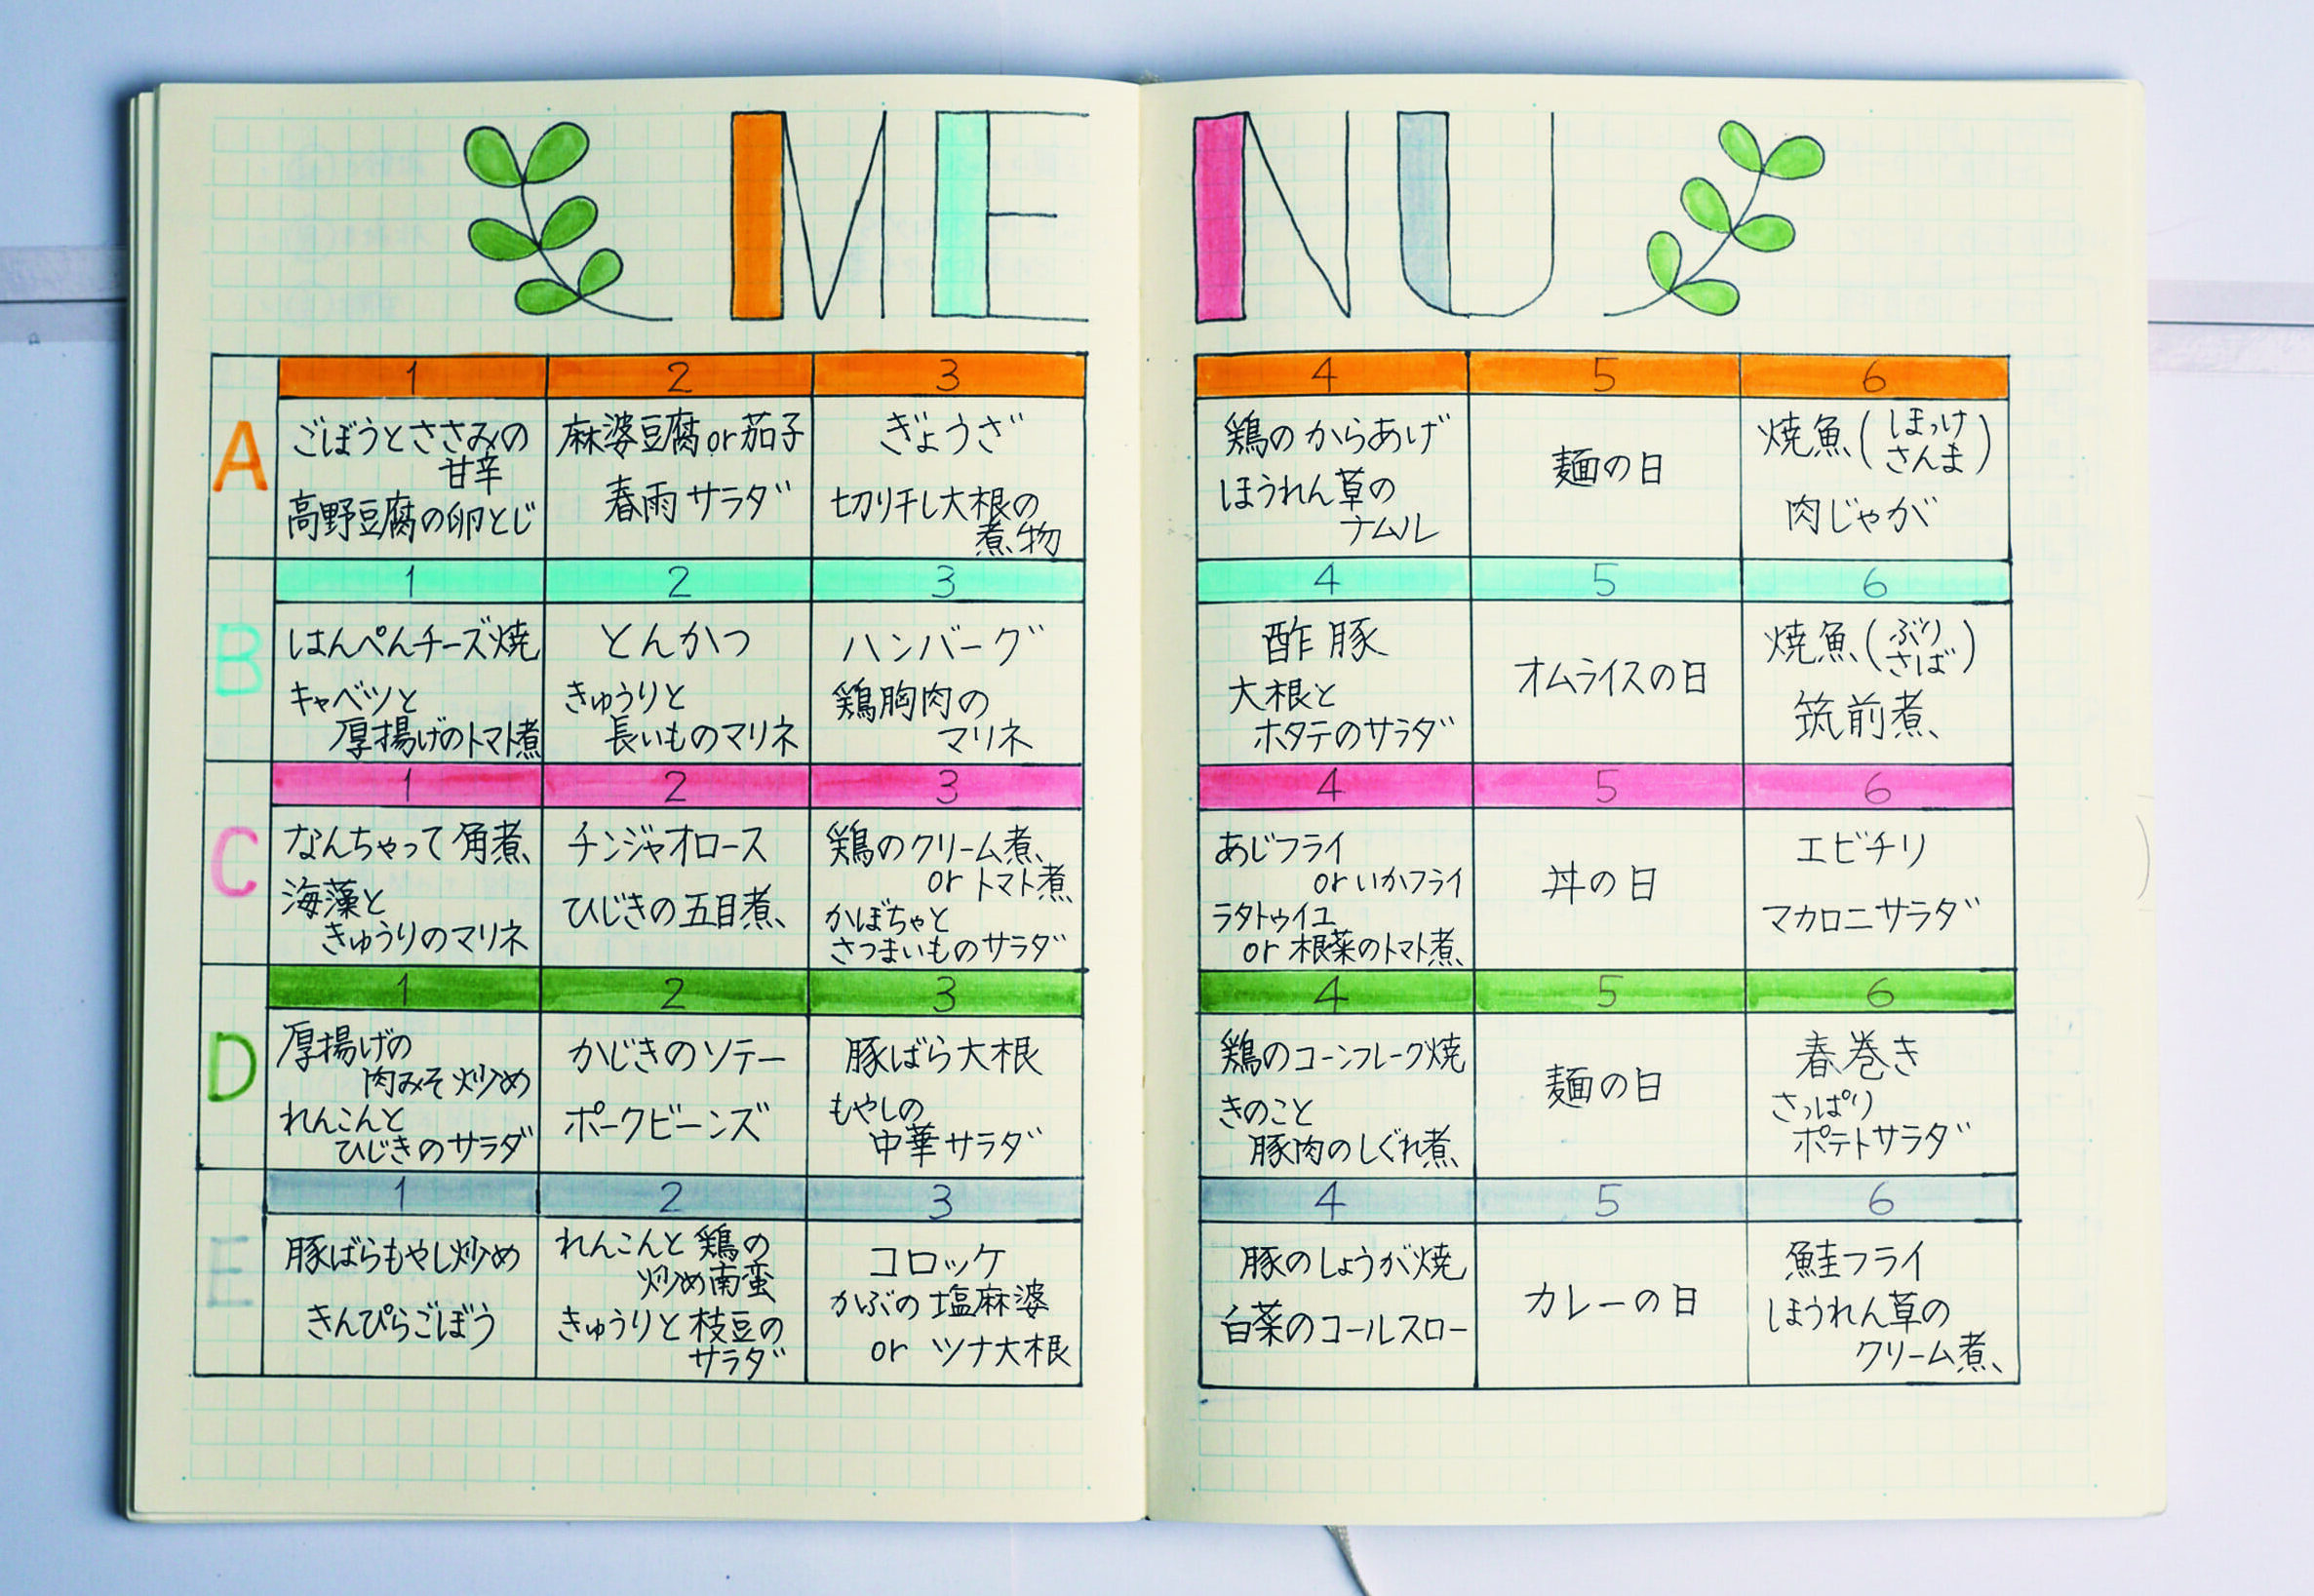 MENU
1 2 3 4 5 6
A
ごぼうとささみの
甘辛
高野豆腐の卵とじ
麻婆豆腐or茄子
春雨サラダ
ぎょうざ
切り干し大根の
煮物
鶏のからあげ
ほうれん草の
ナムル
麺の日
焼魚(ほっけ
さんま)
肉じゃが
1 2 3 4 5 6
B
はんぺんチーズ焼
キャベツと
厚揚げのトマト煮
とんかつ
きゅうりと
長いものマリネ
ハンバーグ
鶏胸肉の
マリネ
酢豚
大根と
ホタテのサラダ
オムライスの日
焼魚(ぶり
さば)
筑前煮
1 2 3 4 5 6
C
なんちゃって角煮
海藻と
きゅうりのマリネ
チンジャオロース
ひじきの五目煮
鶏のクリーム煮
or トマト煮
かぼちゃと
さつまいものサラダ
あじフライ
or いかフライ
ラタトゥイユ
or 根菜のトマト煮
丼の日
エビチリ
マカロニサラダ
1 2 3 4 5 6
D
厚揚げの
肉みそ炒め
れんこんと
ひじきのサラダ
かじきのソテー
ポークビーンズ
豚ばら大根
もやしの
中華サラダ
鶏のコーンフレーク焼
きのこと
豚肉のしぐれ煮
麺の日
春巻き
さっぱり
ポテトサラダ
1 2 3 4 5 6
E
豚ばらもやし炒め
きんぴらごぼう
れんこんと鶏の
炒め南蛮
きゅうりと枝豆の
サラダ
コロッケ
かぶの塩麻婆
or ツナ大根
豚のしょうが焼
白菜のコールスロー
カレーの日
鮭フライ
ほうれん草の
クリーム煮